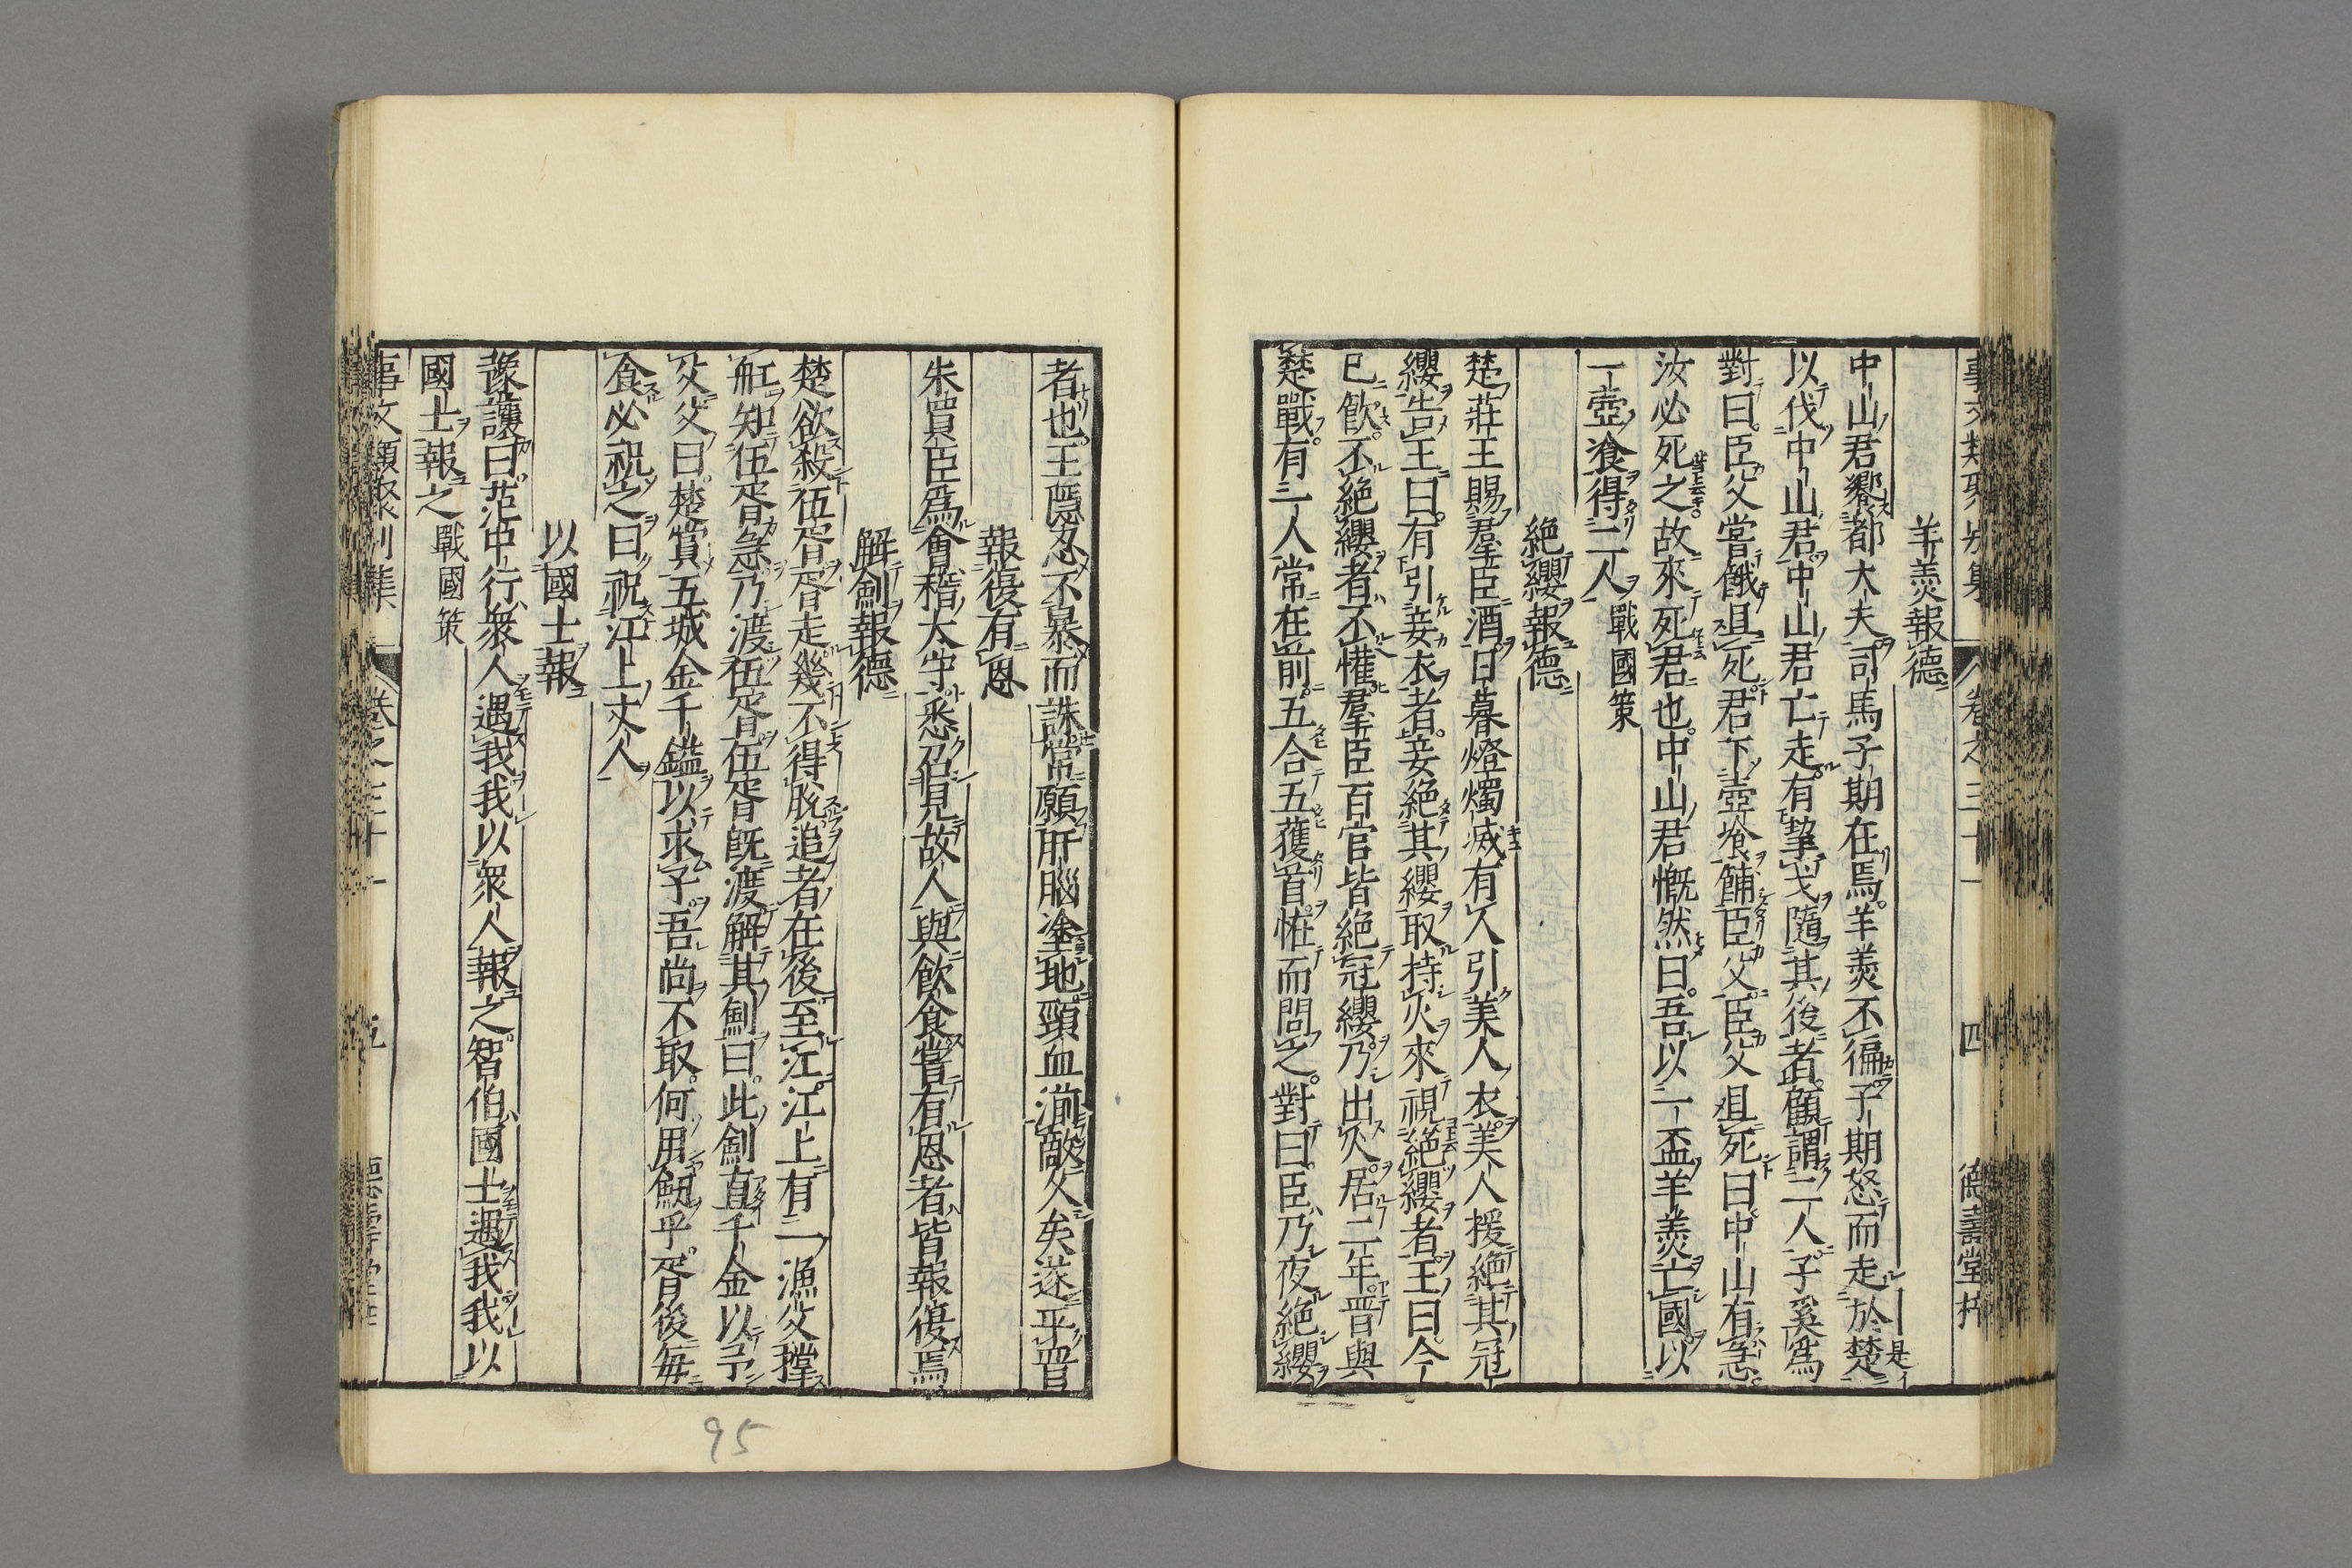 事文類聚別集 卷之三十一 四 德壽堂梓
羊羹報德
中山君饗都大夫司馬子期在焉羊羹不徧子期怒而走於楚
以伐中山君中山君亡走有挈戈隨其後者顧謂二人子奚爲
對曰臣父嘗餓且死君下壺飡餔臣父臣父且死曰中山有急
汝必死之故來死君也中山君慨然曰吾以一盃羊羹亡國以
一壺飡得二人戰國策
絶纓報德
楚莊王賜羣臣酒日暮燈燭滅有人引美人衣美人援絶其冠
纓告王曰有引妾衣者妾絶其纓取持火來視絶纓者王曰今
已飲不絶纓者不懽羣臣百官皆絶冠纓乃出火居二年晋與
楚戰有一人常在前五合五獲首恠而問之對曰臣乃夜絶纓
者也王隱忍不暴而誅常願肝腦塗地頸血湔敵久矣遂平晋
報復有恩
朱買臣爲會稽太守悉召見故人與飲食嘗有恩者皆報復焉
解劍報德
楚欲殺伍胥胥走幾不得脫追者在後至江江上有一漁父撑
舡知伍胥急乃渡伍胥伍胥既渡解其劍曰此劍直千金以予
父父曰楚賞五城金千鎰以求子吾尚不取何用劍乎胥後每
食必祝之曰祝江上丈人
以國士報
豫讓曰范中行衆人遇我我以衆人報之智伯國士遇我我以
國士報之戰國策
事文類聚別集 卷之三十一 五